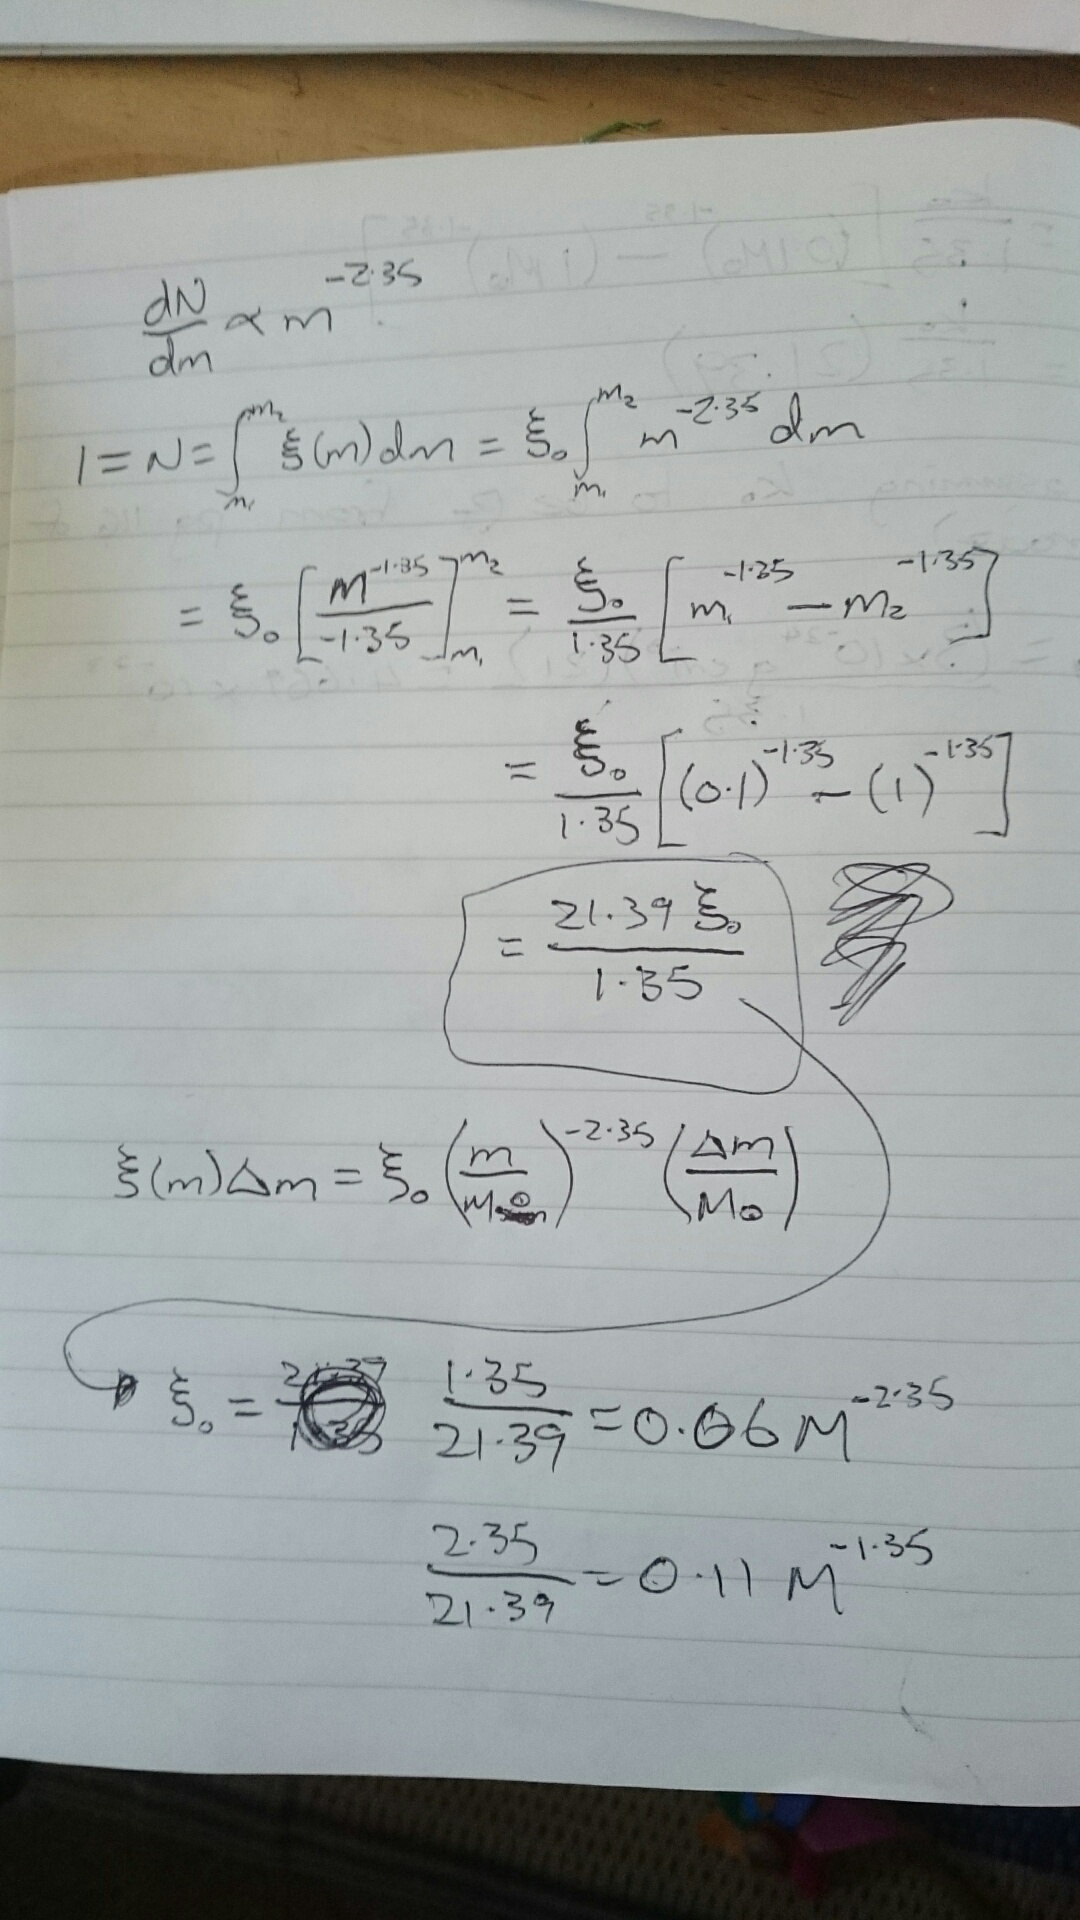 dN/dm ∝ m^-2.35
1 = N = ∫_m₁^m₂ ξ(m)dm = ξ₀ ∫_m₁^m₂ m^-2.35 dm
= ξ₀ [m^-1.35 / -1.35]_m₁^m₂ = ξ₀/1.35 [m₁^-1.35 - m₂^-1.35]
= ξ₀/1.35 [(0.1)^-1.35 - (1)^-1.35]
= 21.39 ξ₀ / 1.35
ξ(m)Δm = ξ₀ (m/M⊙)^-2.35 (Δm/M⊙)
ξ₀ = 1.35/21.39 = 0.06 M^-2.35
2.35/21.39 = 0.11 M^-1.35